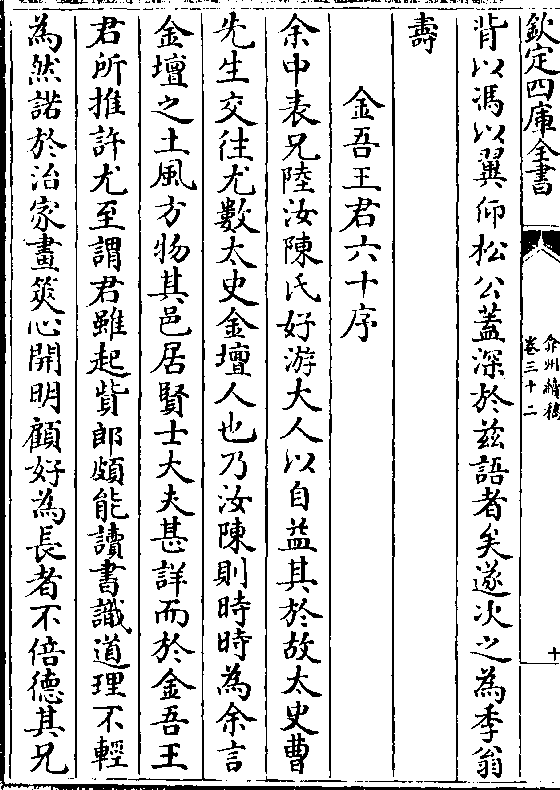 欽定四庫全書
弇州續稿
卷三十二
十
背以馮以翼仰松公蓋深於兹語者矣遂次之為季翁
壽
金吾王君六十序
余中表兄陸汝陳氏好游大人以自益其於故太史曹
先生交往尤數太史金壇人也乃汝陳則時時為余言
金壇之土風方物其邑居賢士大夫甚詳而於金吾王
君所推許尤至謂君雖起貲郎頗能讀書識道理不輕
為然諾於治家畫筴心開明顧好為長者不倍德其兄